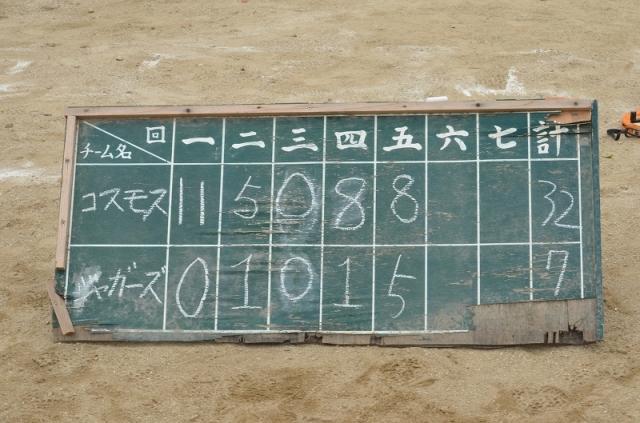 回 一 二 三 四 五 六 七 計
チーム名
コスモス 11 5 0 8 8 32
ジャガーズ 0 1 0 1 5 7